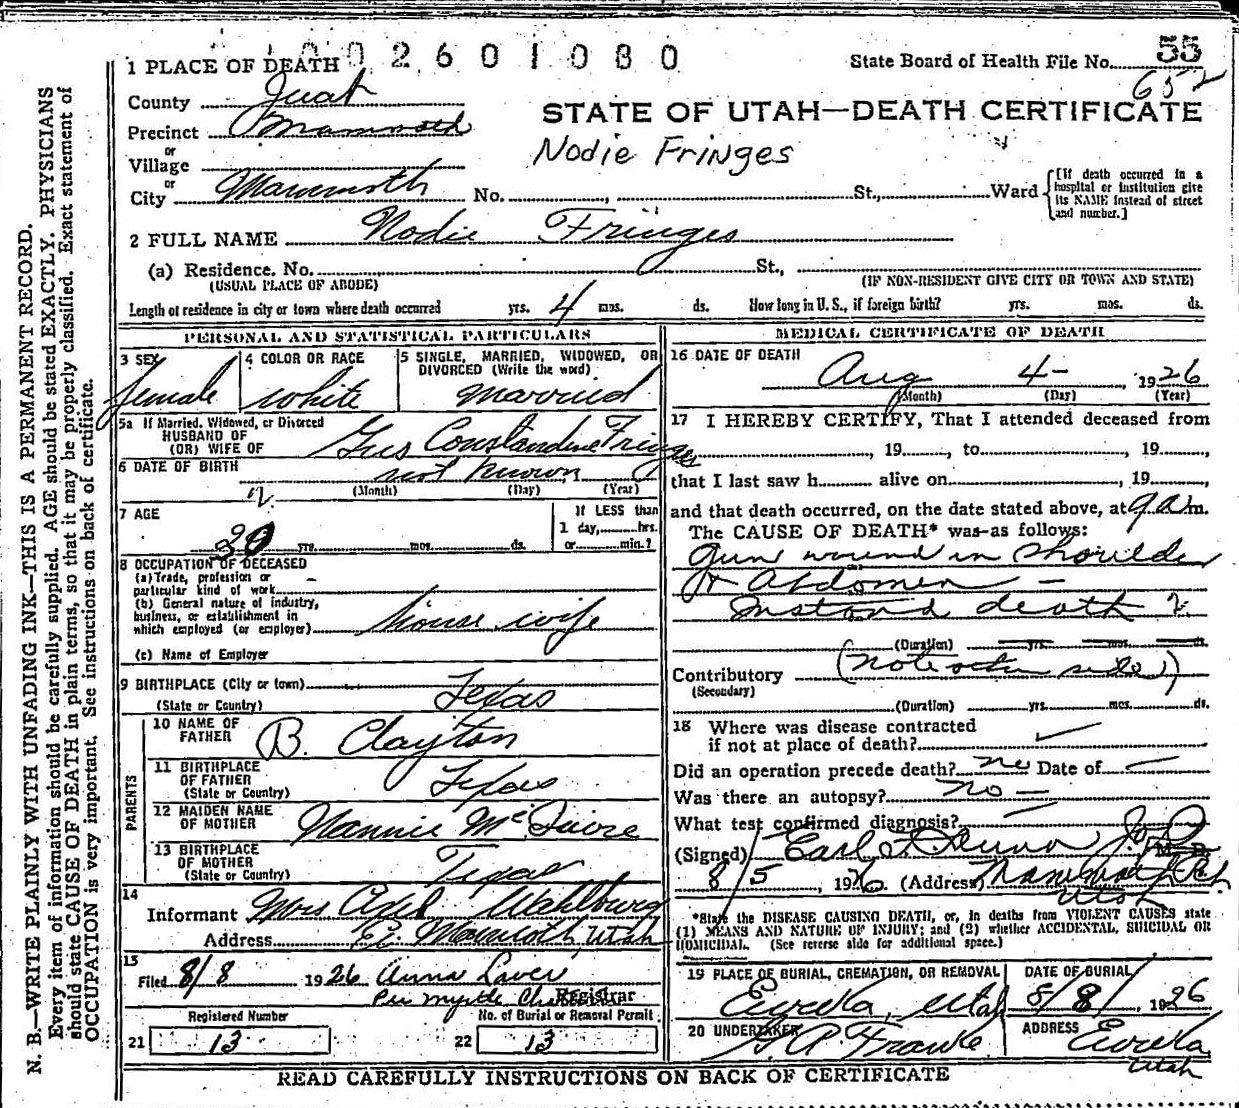 1 PLACE OF DEATH 002601080
State Board of Health File No. 55
652
County Juab
STATE OF UTAH—DEATH CERTIFICATE
Precinct Mammoth
or
Village
Nodie Fringes
or
City Mammoth No. , St., Ward
[If death occurred in a
hospital or institution give
its NAME instead of street
and number.]
2 FULL NAME Nodie Fringes
(a) Residence. No. St.,
(USUAL PLACE OF ABODE) (IF NON-RESIDENT GIVE CITY OR TOWN AND STATE)
Length of residence in city or town where death occurred yrs. 4 mos. ds. How long in U.S., if foreign birth? yrs. mos. ds.
PERSONAL AND STATISTICAL PARTICULARS
3 SEX 4 COLOR OR RACE 5 SINGLE, MARRIED, WIDOWED, OR
DIVORCED (Write the word)
female white married
5a If Married, Widowed, or Divorced
HUSBAND OF
(OR) WIFE OF Gus Constandine Fringes
6 DATE OF BIRTH not known
(Month) (Day) (Year)
7 AGE
If LESS than
1 day,........hrs.
or........min.?
30 yrs. mos. ds.
8 OCCUPATION OF DECEASED
(a) Trade, profession or
particular kind of work
(b) General nature of industry,
business, or establishment in
which employed (or employer) house wife
(c) Name of Employer
9 BIRTHPLACE (City or town)
(State or Country) Texas
PARENTS
10 NAME OF
FATHER B. Clayton
11 BIRTHPLACE
OF FATHER
(State or Country) Texas
12 MAIDEN NAME
OF MOTHER Nannie McGuire
13 BIRTHPLACE
OF MOTHER
(State or Country) Texas
14
Informant Mrs Wahlburg
Address Mammoth, Utah
15
Filed 8/8 1926 Anna Laver
Per Myrtle
Registrar
Registered Number No. of Burial or Removal Permit
21 13 22 13
MEDICAL CERTIFICATE OF DEATH
16 DATE OF DEATH
Aug 4- , 1926
(Month) (Day) (Year)
17 I HEREBY CERTIFY, That I attended deceased from
, 19 , to , 19 ,
that I last saw h alive on , 19 ,
and that death occurred, on the date stated above, at 9 a m.
The CAUSE OF DEATH* was as follows:
Gun wound in shoulder
& Abdomen —
Instant death
(Duration) yrs. mos. ds.
Contributory (note other side)
(Secondary)
(Duration) yrs. mos. ds.
18 Where was disease contracted
if not at place of death?
Did an operation precede death? no Date of —
Was there an autopsy? no —
What test confirmed diagnosis?
(Signed) Earl J.P. M. D.
8/5 , 1926 (Address) Mammoth
Utah
*State the DISEASE CAUSING DEATH, or, in deaths from VIOLENT CAUSES state
(1) MEANS AND NATURE OF INJURY; and (2) whether ACCIDENTAL, SUICIDAL OR
HOMICIDAL. (See reverse side for additional space.)
19 PLACE OF BURIAL, CREMATION, OR REMOVAL DATE OF BURIAL
Eureka, Utah 8/8/ , 1926
20 UNDERTAKER ADDRESS
Franke Eureka
Utah
READ CAREFULLY INSTRUCTIONS ON BACK OF CERTIFICATE
N. B.—WRITE PLAINLY WITH UNFADING INK—THIS IS A PERMANENT RECORD.
Every item of information should be carefully supplied. AGE should be stated EXACTLY. PHYSICIANS
should state CAUSE OF DEATH in plain terms, so that it may be properly classified. Exact statement of
OCCUPATION is very important. See instructions on back of certificate.